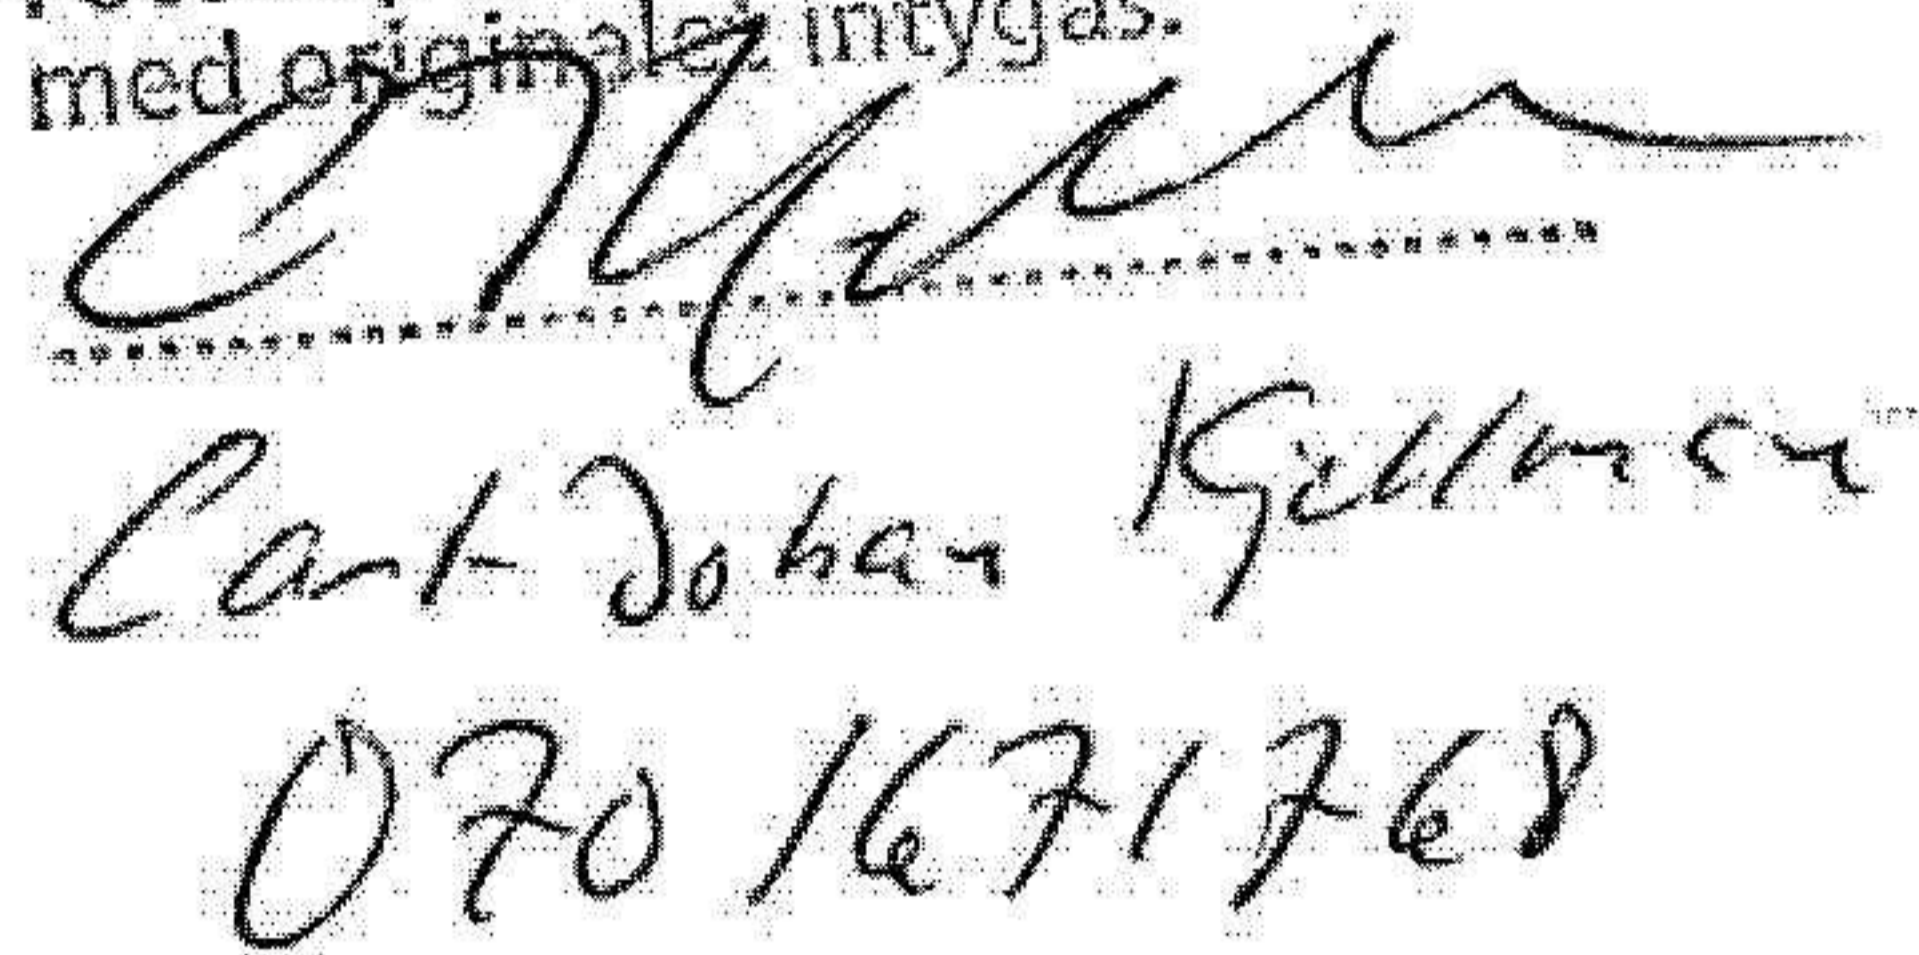 med originalet intygas.
Carl Johan Kjellman
070 1671768